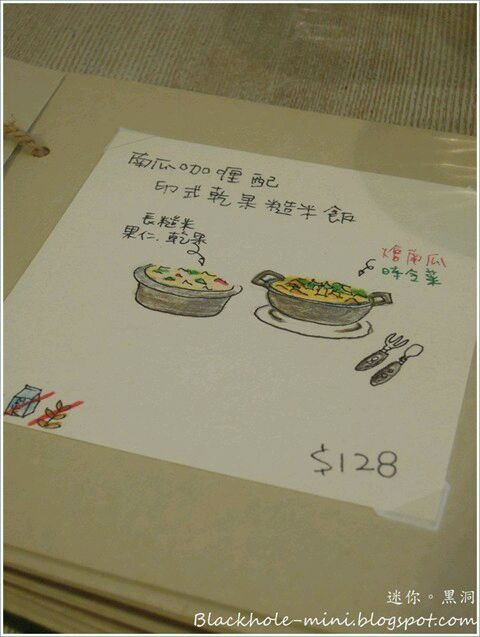 南瓜咖喱配
印式乾果糙米飯
長糙米
果仁、乾果
燴南瓜
時令菜
$128
迷你。黑洞
Blackhole-mini.blogspot.com